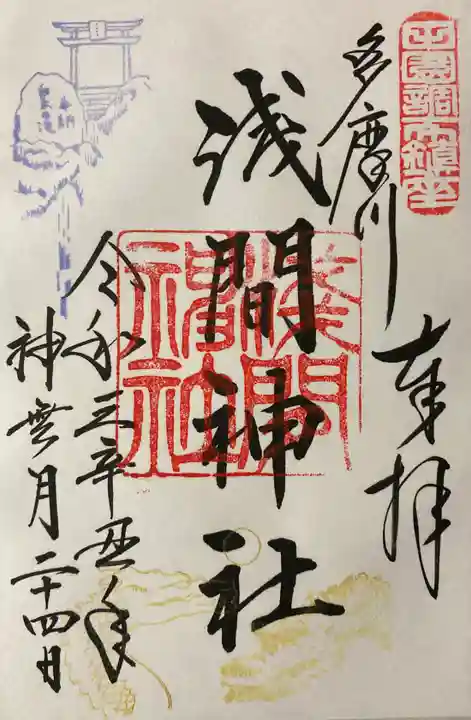 田園調布鎮座
多摩川
奉拝
浅間神社
浅間神社
令和三辛丑年
神無月二十四日